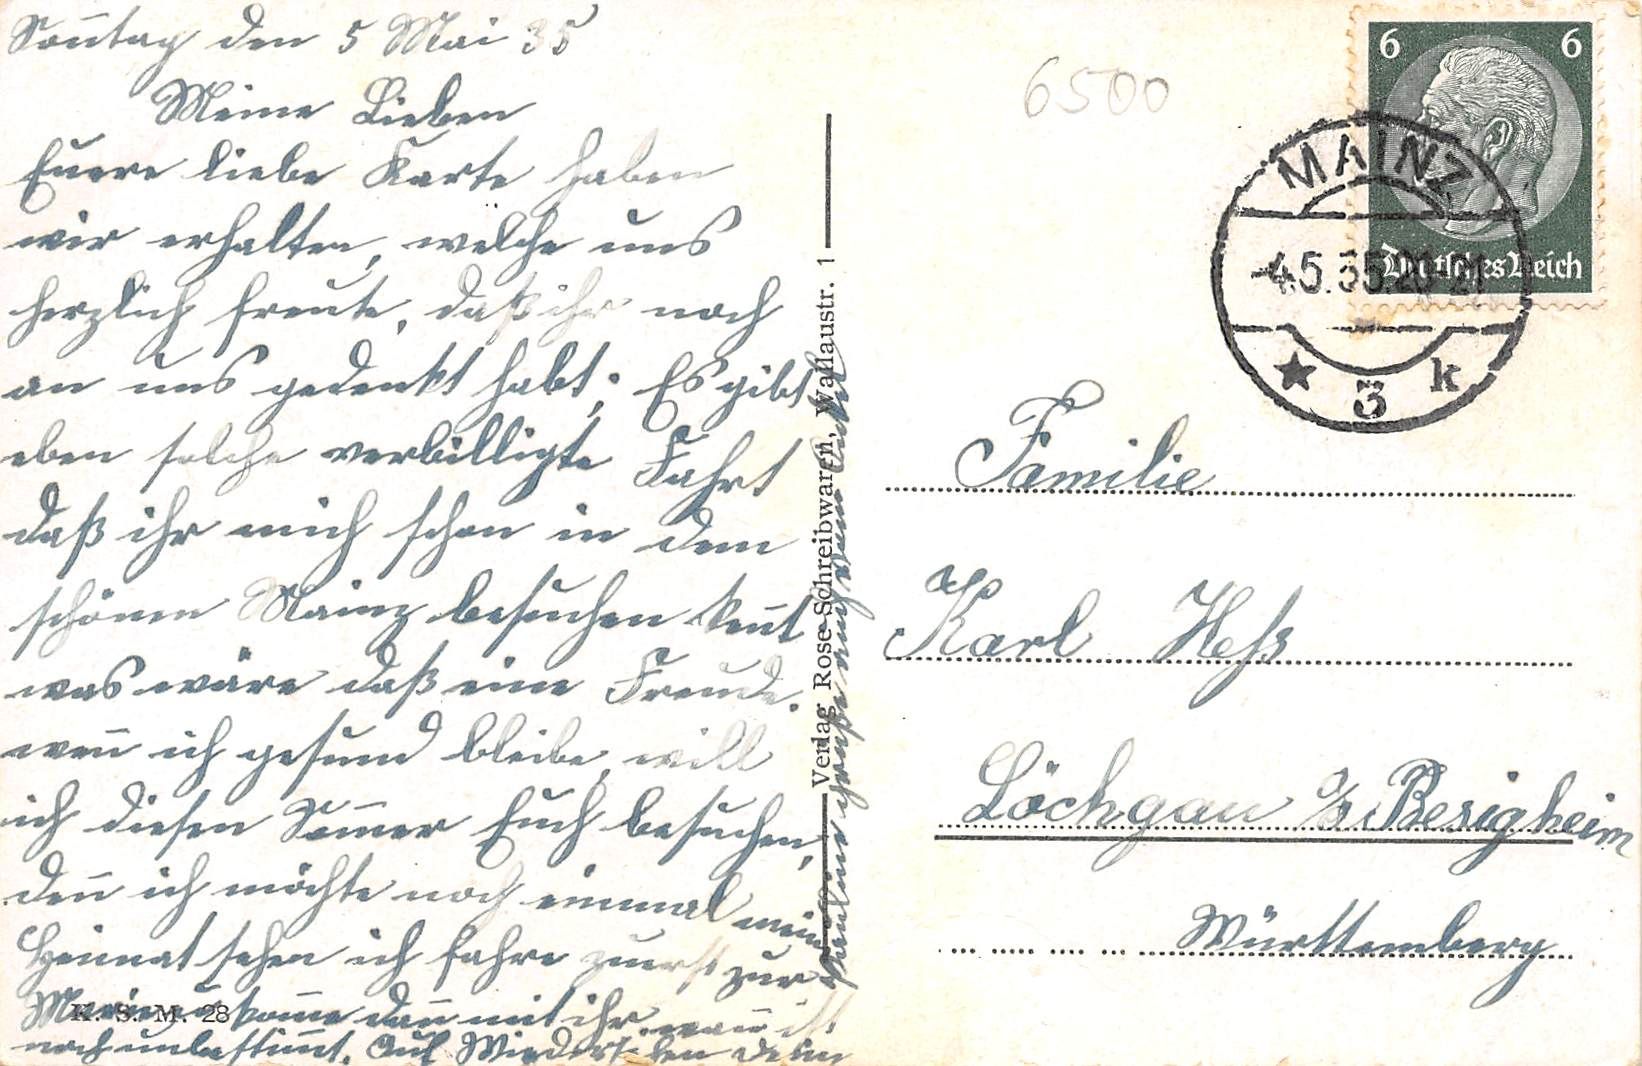 Sontag den 5 Mai 35
Meine Lieben
Euere liebe Karte haben
wir erhalten, welche uns
herzlich freute, daß ihr noch
an uns gedenkt habt. Es gibt
eben solche verbilligte Fahrt
daß ihr mich schon in dem
schönen Mainz besuchen könt
was wäre daß eine Freude.
wen̄ ich gesund bleibe, will
ich diesen Som̄er Euch besuchen,
den̄ ich möchte noch einmal mein
Heimat sehen ich fahre zuerst zur
Marie u kom̄e dan̄ mit ihr wan̄ ist
noch unbestim̄t. Auf Wiedersehen
Pauline
Verlag Rose-Schreibwaren, Wallaustr. 1
K. S. M. 28
6500
6 6
Deutsches Reich
MAINZ
-4.5.35.20-21
★ 3 k
Familie
Karl Heß
Löchgau o/a Besigheim
Württemberg